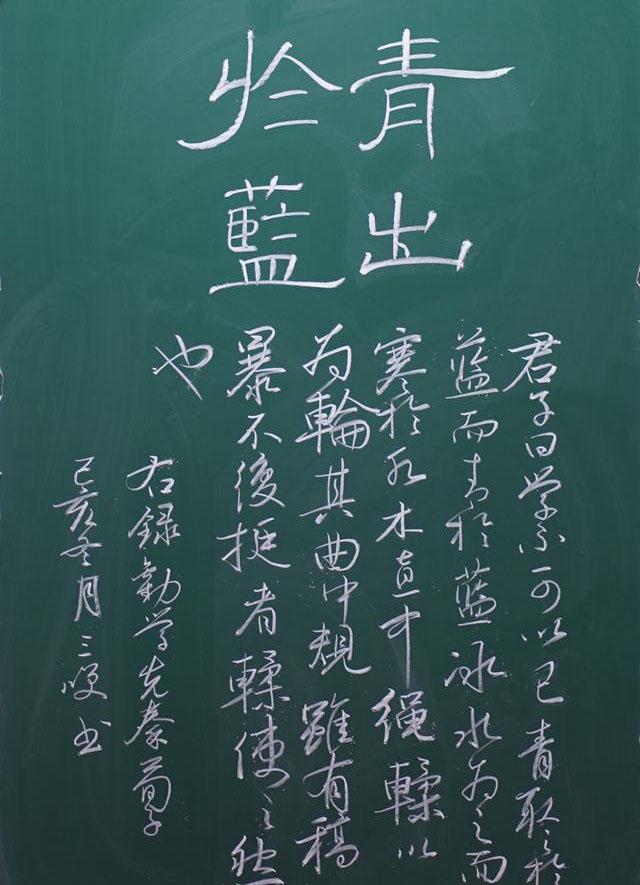 青出
於藍
君子曰学不可以已青取之於
蓝而青於蓝冰水为之而
寒於水木直中绳輮以
为輪其曲中規雖有槁
暴不復挺者輮使之然
也
右録勸学先秦荀子
己亥冬月三叹书